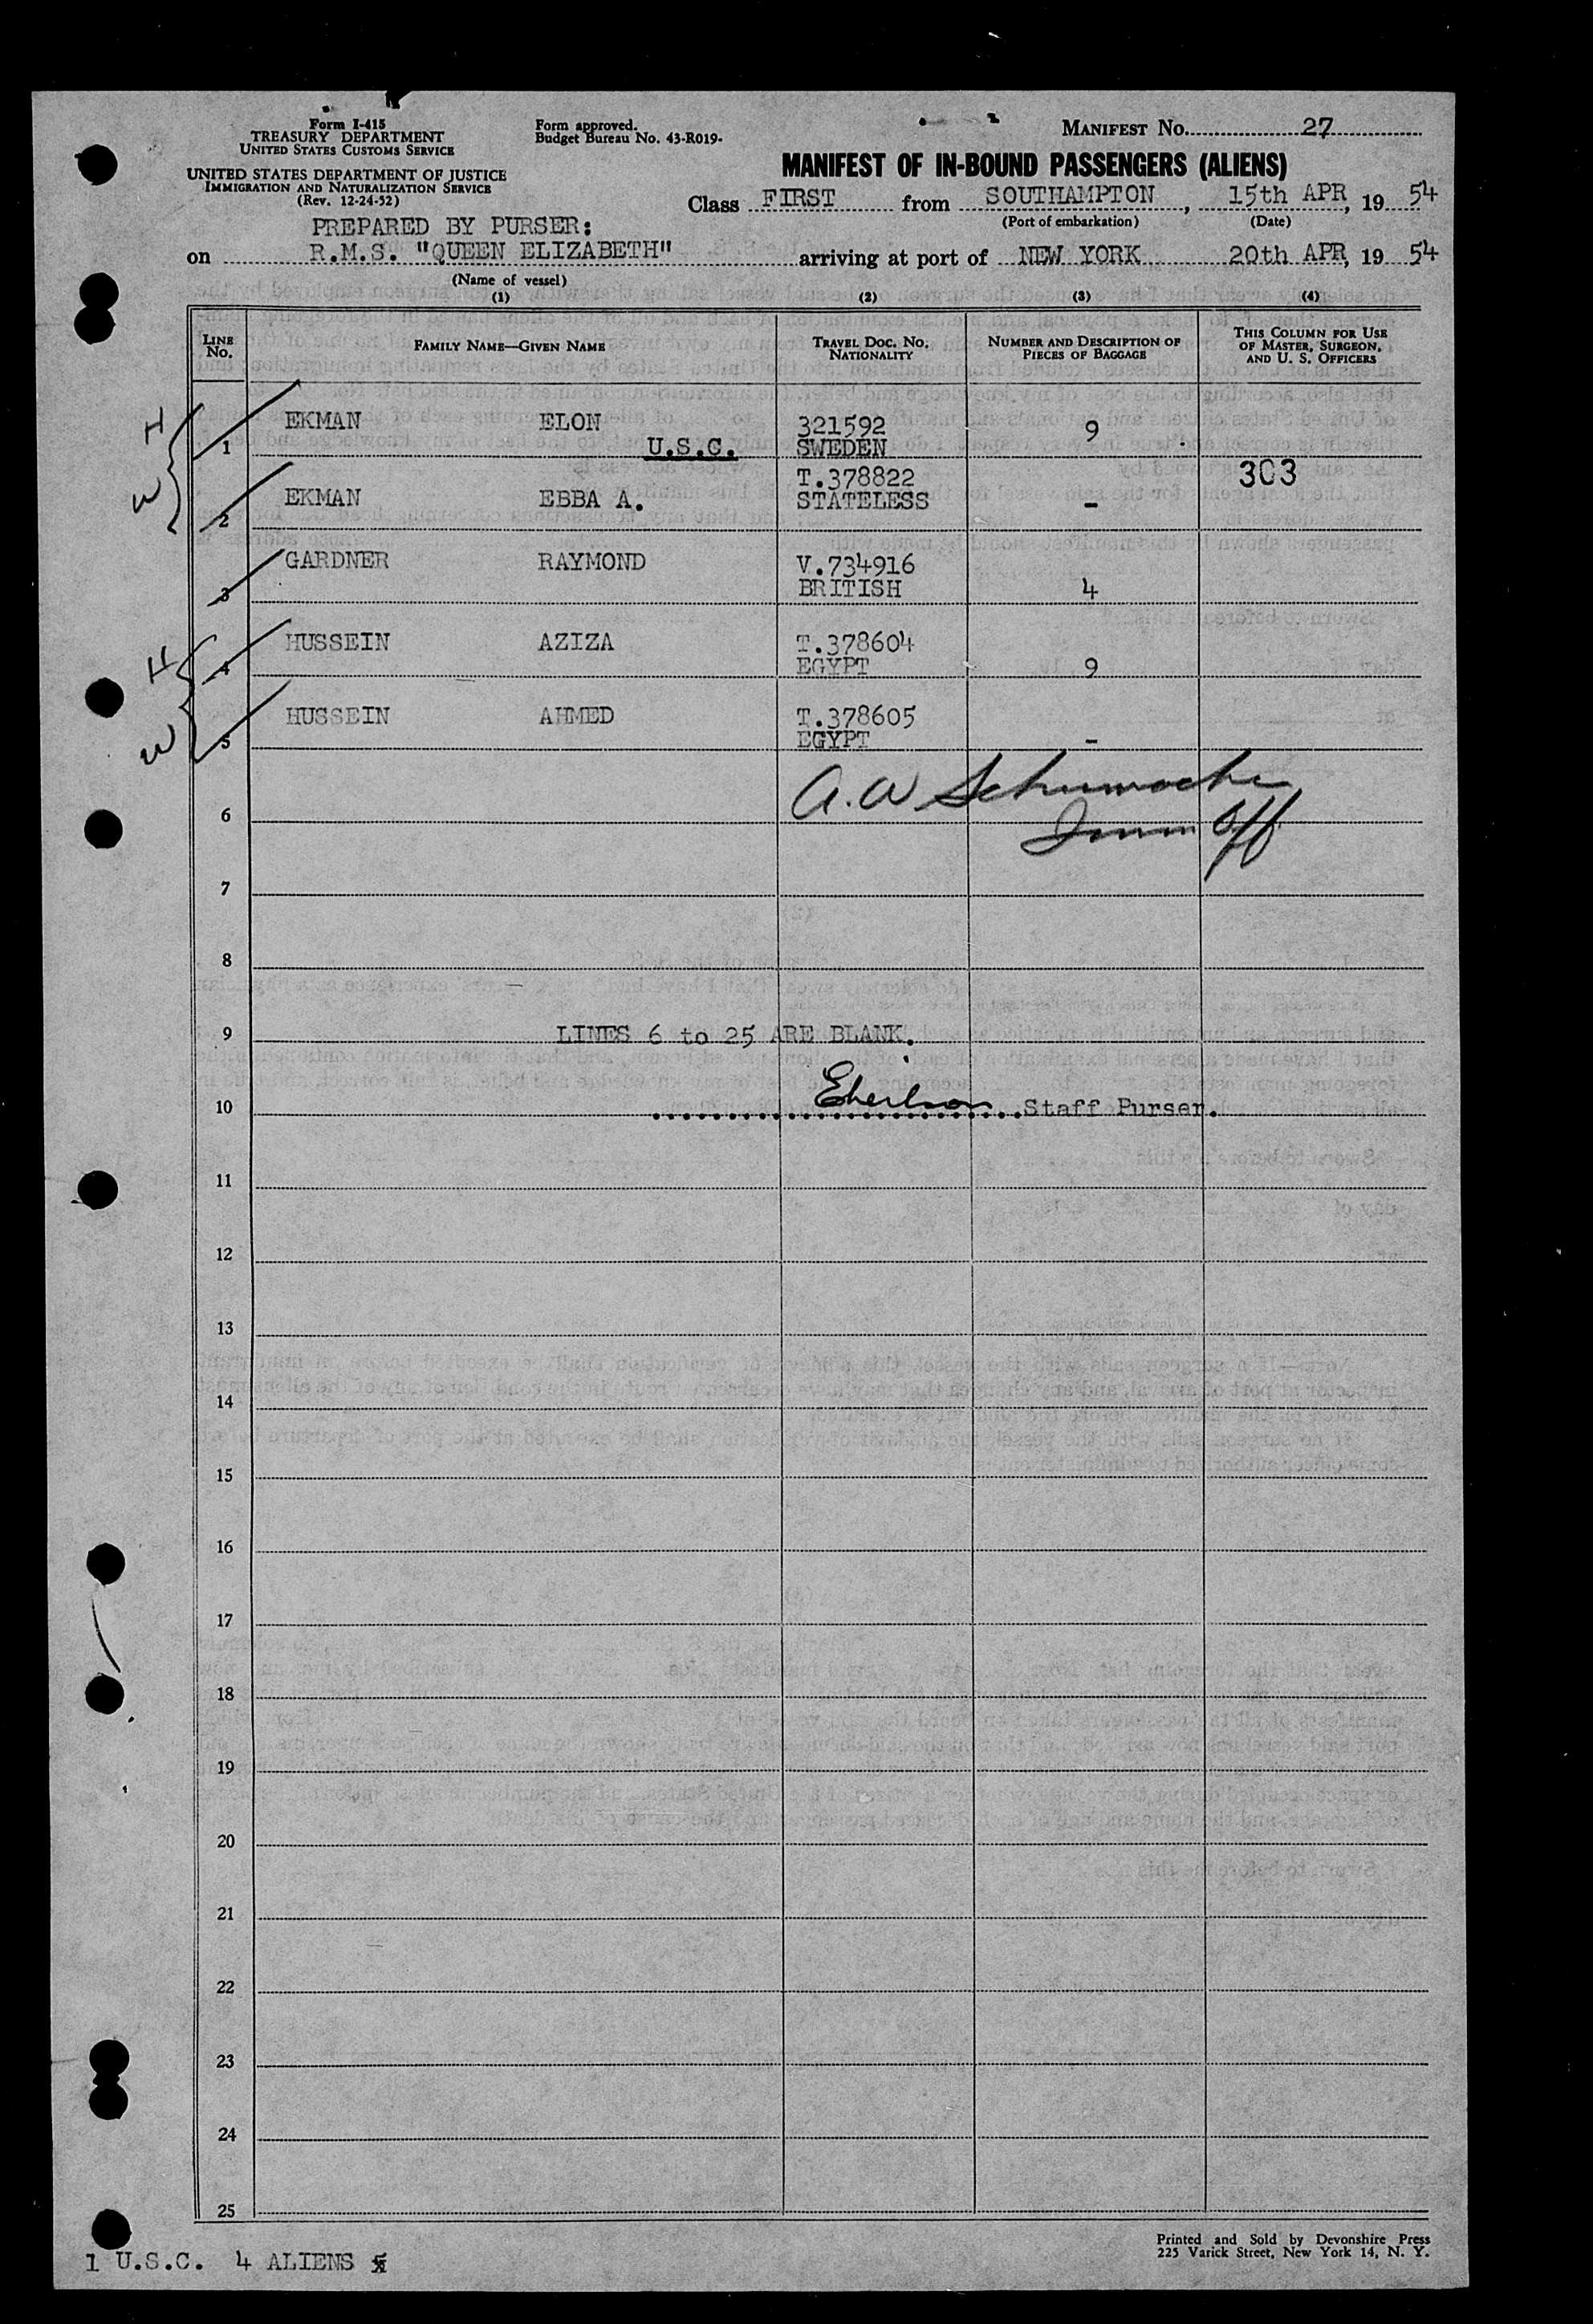 Form I-415
TREASURY DEPARTMENT
UNITED STATES CUSTOMS SERVICE
UNITED STATES DEPARTMENT OF JUSTICE
IMMIGRATION AND NATURALIZATION SERVICE
(Rev. 12-24-52)
Form approved.
Budget Bureau No. 43-R019-
MANIFEST No. 27
MANIFEST OF IN-BOUND PASSENGERS (ALIENS)
Class FIRST from SOUTHAMPTON, 15th APR, 19 54
(Port of embarkation) (Date)
PREPARED BY PURSER:
on R.M.S. "QUEEN ELIZABETH" arriving at port of NEW YORK 20th APR, 19 54
(Name of vessel)
(1) (2) (3) (4)
LINE No. FAMILY NAME—GIVEN NAME TRAVEL DOC. NO. NATIONALITY NUMBER AND DESCRIPTION OF PIECES OF BAGGAGE THIS COLUMN FOR USE OF MASTER, SURGEON, AND U. S. OFFICERS
H
W
1 EKMAN ELON 321592 9
U.S.C. SWEDEN
T.378822 303
2 EKMAN EBBA A. STATELESS -
3 GARDNER RAYMOND V.734916
BRITISH 4
H
W
4 HUSSEIN AZIZA T.378604
EGYPT 9
5 HUSSEIN AHMED T.378605
EGYPT -
A.W Schumacher
6 Imm Off
7
8
9 LINES 6 to 25 ARE BLANK.
10 Staff Purser.
11
12
13
14
15
16
17
18
19
20
21
22
23
24
25
1 U.S.C. 4 ALIENS
Printed and Sold by Devonshire Press
225 Varick Street, New York 14, N. Y.